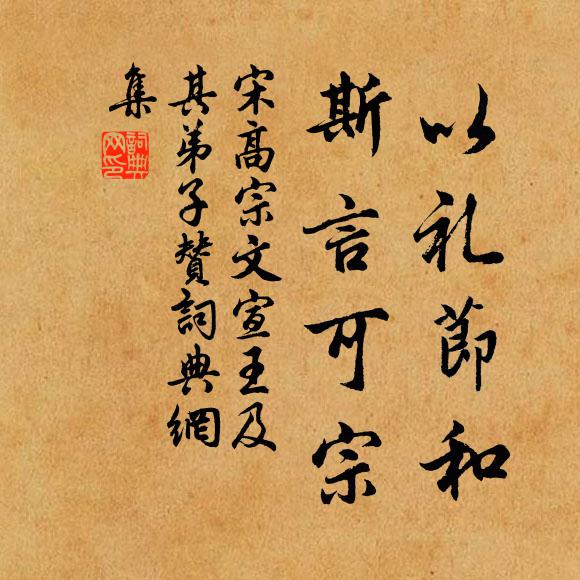 以礼節和
斯言可宗
宋高宗文宣王及
其弟子贊詞典網
集
詞典
网印